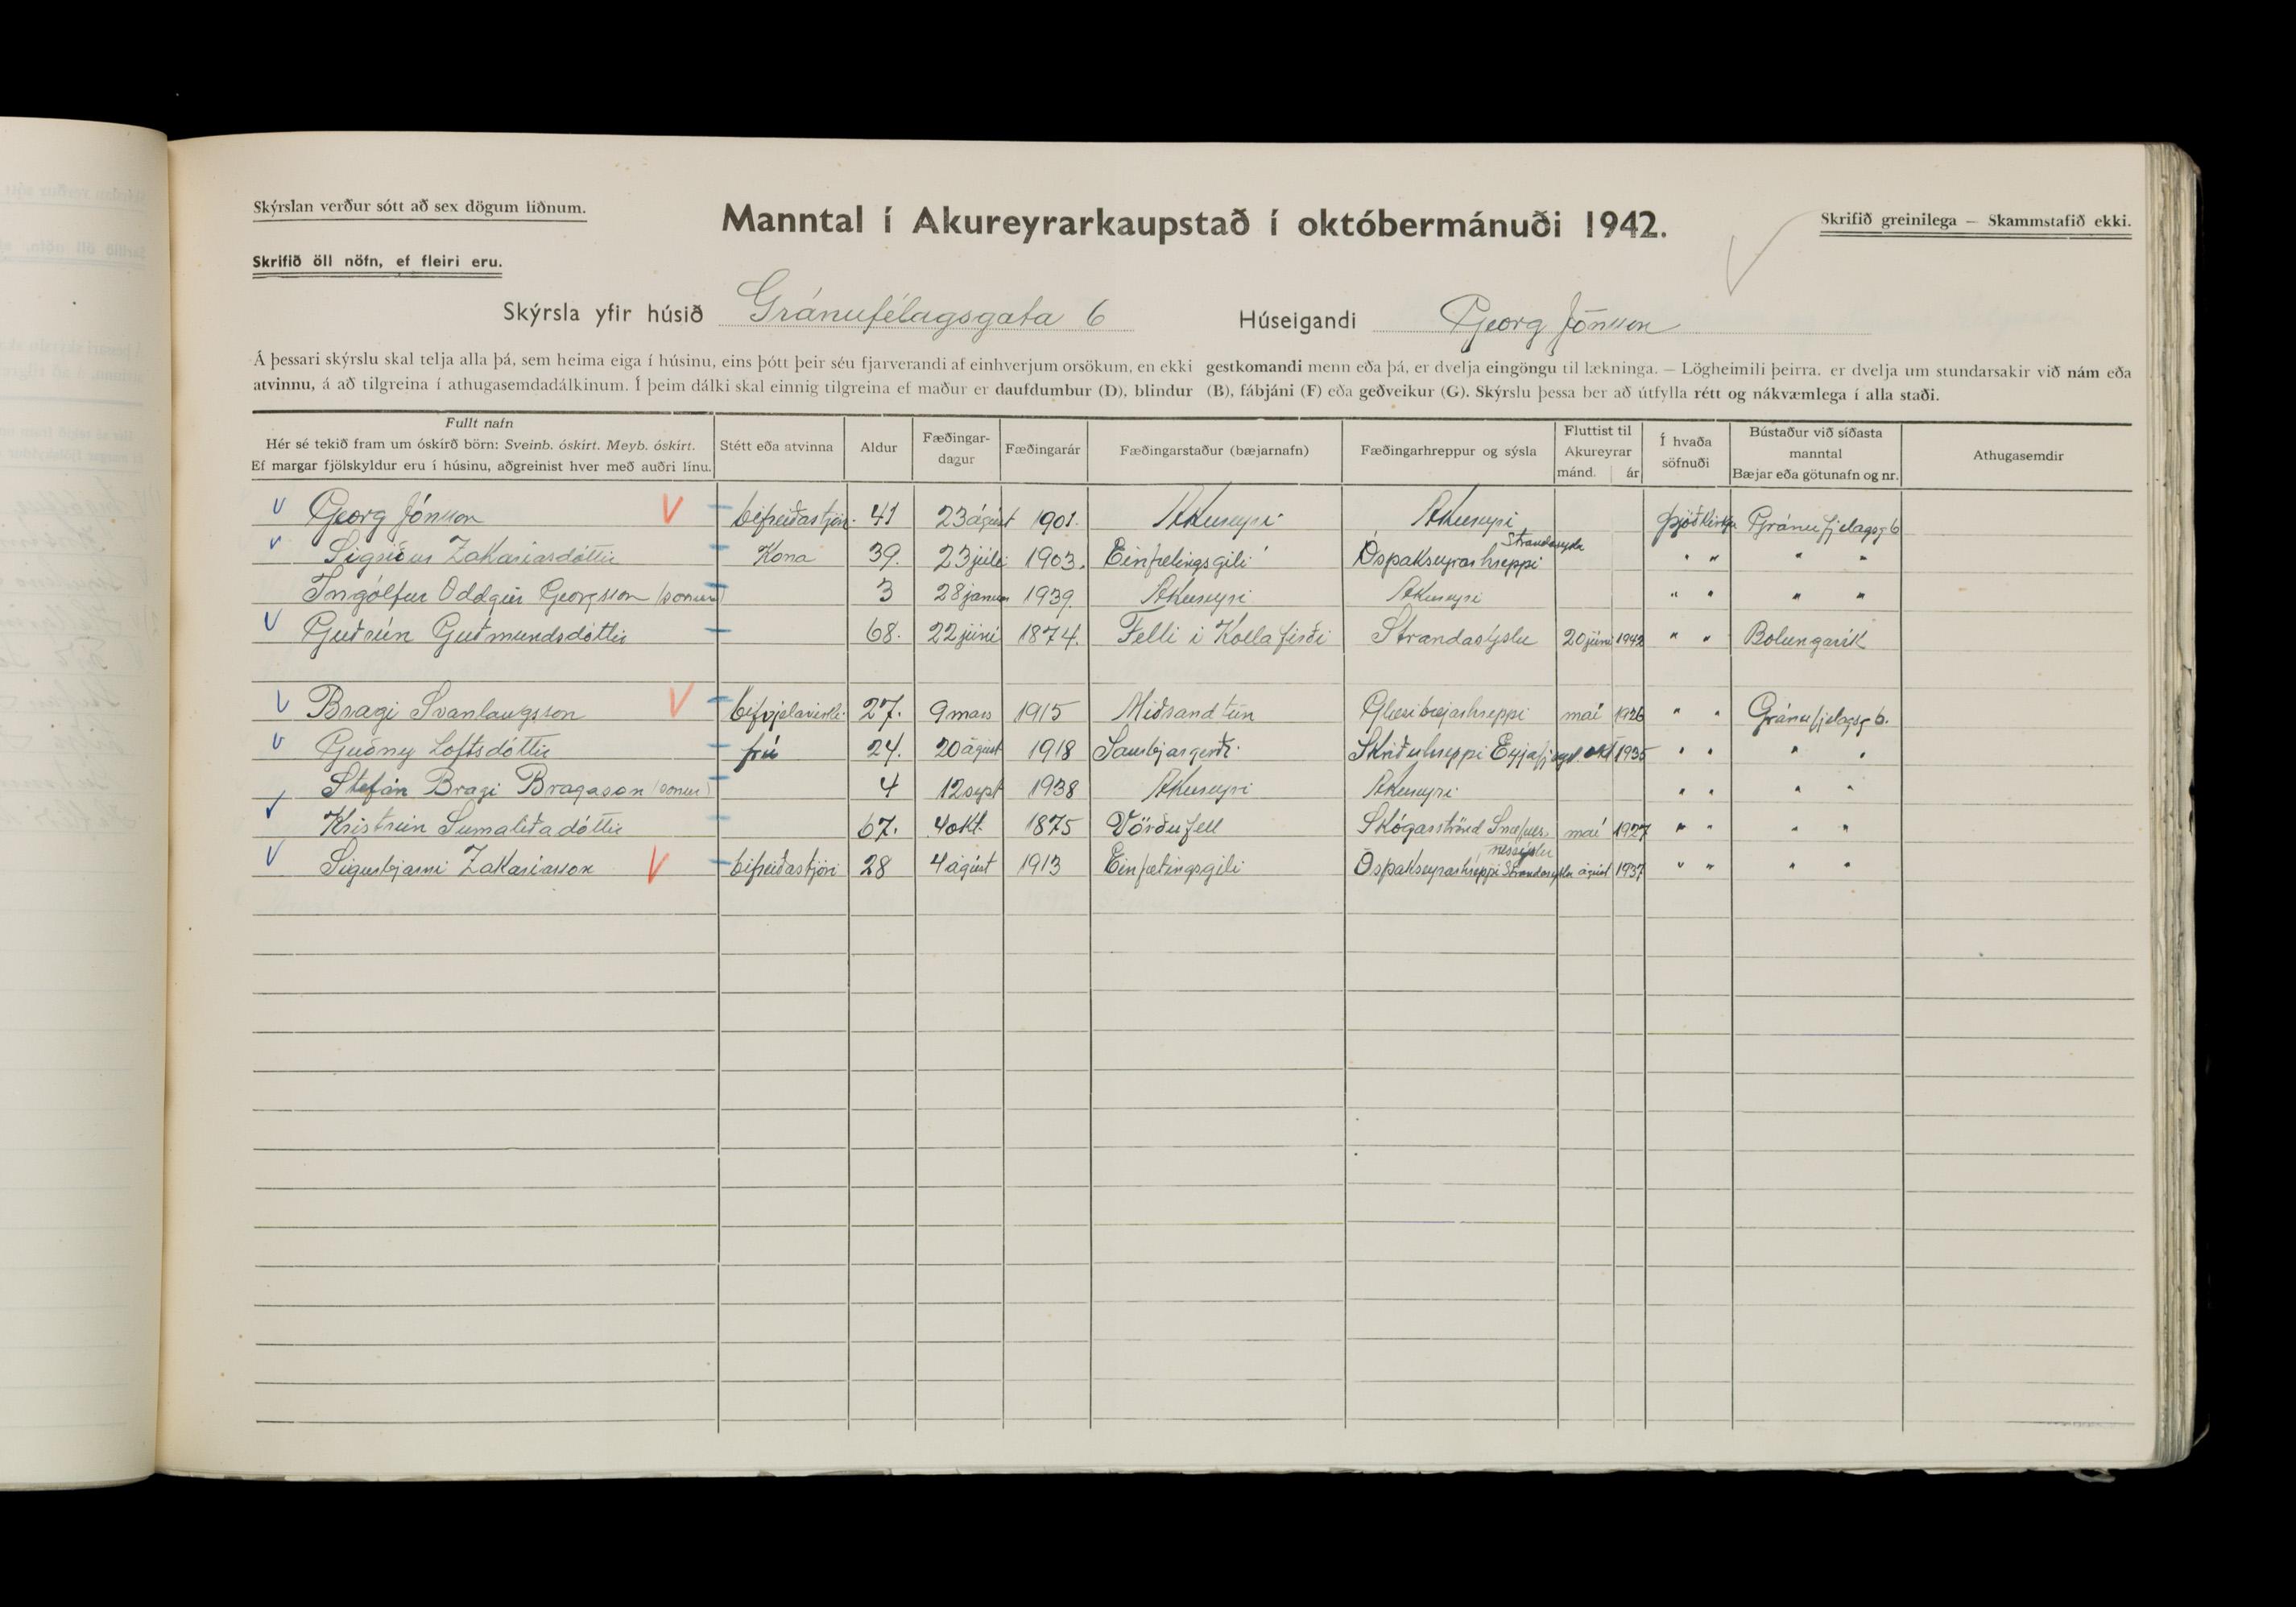 Skýrslan verður sótt að sex dögum liðnum.
Manntal í Akureyrarkaupstað í októbermánuði 1942.
Skrifið greinilega — Skammstafið ekki.
Skrifið öll nöfn, ef fleiri eru.
Skýrsla yfir húsið Gránufélagsgata 6 Húseigandi Georg Jónsson
Á þessari skýrslu skal telja alla þá, sem heima eiga í húsinu, eins þótt þeir séu fjarverandi af einhverjum orsökum, en ekki gestkomandi menn eða þá, er dvelja eingöngu til lækninga. — Lögheimili þeirra. er dvelja um stundarsakir við nám eða
atvinnu, á að tilgreina í athugasemdadálkinum. Í þeim dálki skal einnig tilgreina ef maður er daufdumbur (D), blindur (B), fábjáni (F) eða geðveikur (G). Skýrslu þessa ber að útfylla rétt og nákvæmlega í alla staði.
Fullt nafn
Hér sé tekið fram um óskírð börn: Sveinb. óskírt. Meyb. óskírt.
Ef margar fjölskyldur eru í húsinu, aðgreinist hver með auðri línu.
Stétt eða atvinna
Aldur
Fæðingar-
dagur
Fæðingarár
Fæðingarstaður (bæjarnafn)
Fæðingarhreppur og sýsla
Fluttist til
Akureyrar
mánd. ár
Í hvaða
söfnuði
Bústaður við síðasta
manntal
Bæjar eða götunafn og nr.
Athugasemdir
Georg Jónsson bifreiðastjóri 41 23 ágúst 1901. Akureyri Akureyri Þjóðkirkju Gránufjelagsg 6
Sigríður Zakaríasdóttir Kona 39. 23 júlí 1903. Einfætingsgili Óspakseyrarhreppi Strandasýsla " " " "
Ingólfur Oddgeir Georgsson (sonur) 3 28 januar 1939. Akureyri Akureyri " " " "
Guðrún Guðmundsdóttir 68. 22 júní 1874. Felli i Kollafirði Strandasýslu 20 júní 1942 " " Bolungarík
Bragi Svanlaugsson bifvjelavirki 27. 9 mars 1915 Miðsand tún Glæsibæjarhreppi maí 1926 " " Gránufjelagsg 6.
Guðny Loftsdóttir frú 24. 20 ágúst 1918 Saurbjargerði Skriðuhreppi Eyjafj okt 1935 " " " "
Stefán Bragi Bragason (sonur) 4 12 sept 1938 Akureyri Akureyri " " " "
Kristrún Sumaliðadóttir 67. 4 okt. 1875 Vörðufell Skógarströnd Snæfells- nessýslu maí 1927 " " " "
Sigurbjarni Zakaríasson bifreiðastjóri 28 4 ágúst 1913 Einfætingsgili Óspakseyrarhreppi Strandasýsla ágúst 1937 " " " "